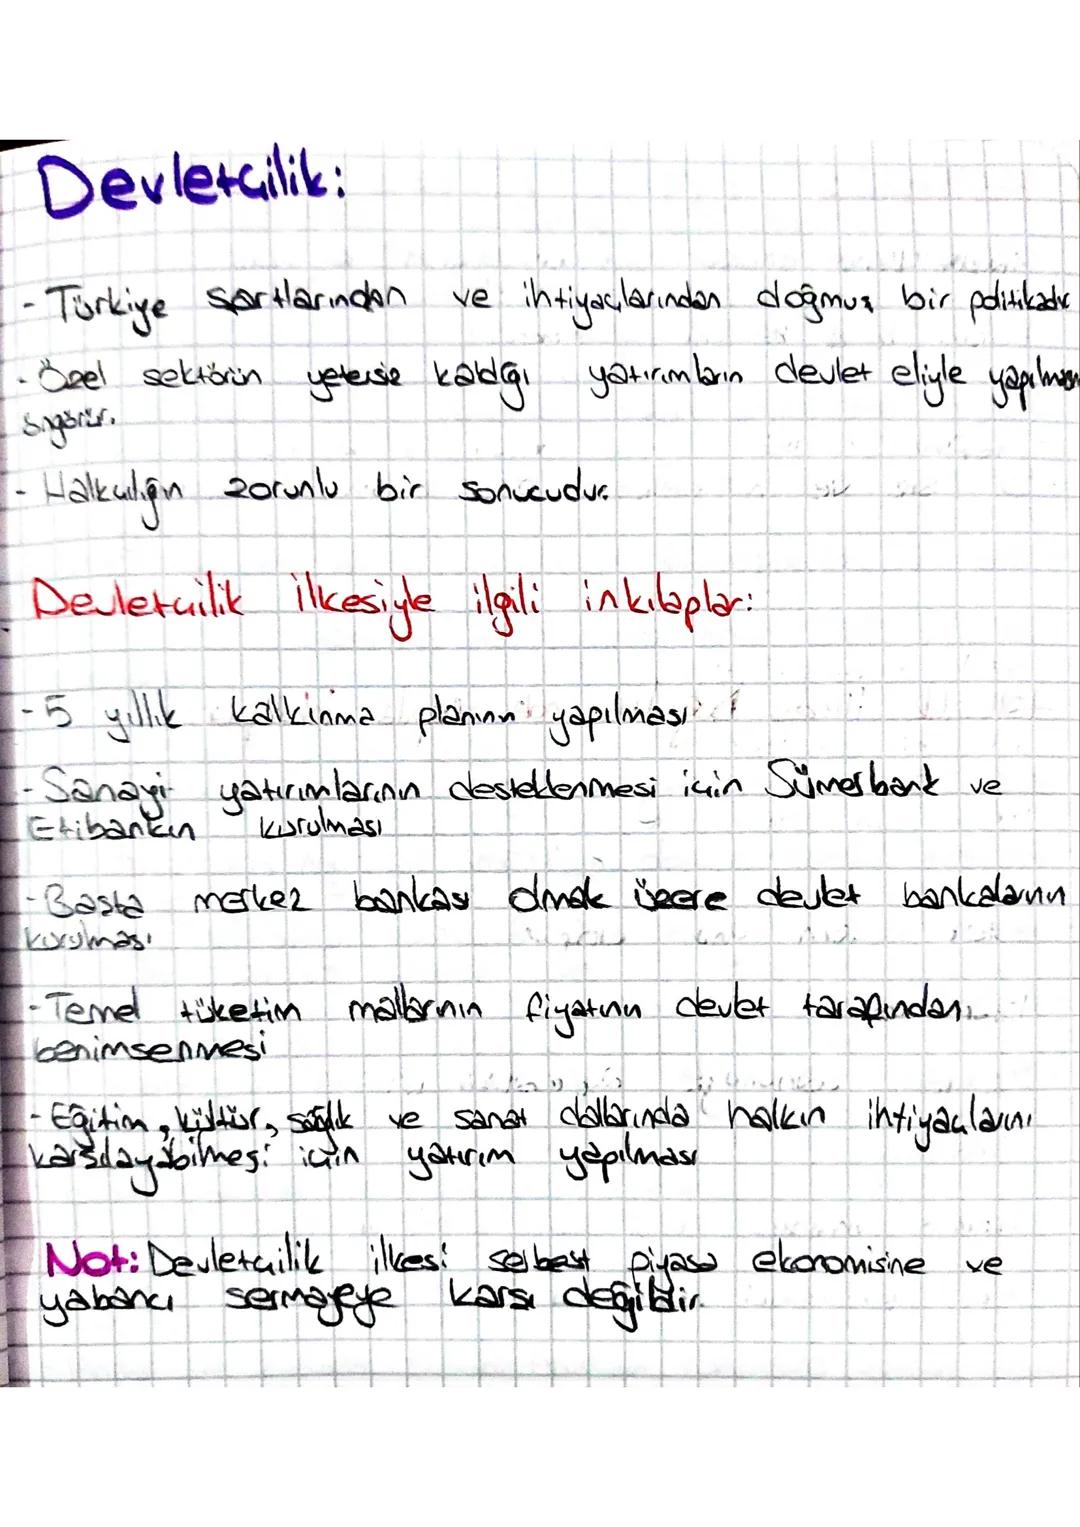 Devletçilik:
- Türkiye şartlarından ve ihtiyaçlarından doğmuş bir politikadır
- Özel sektörün yetersiz kaldığı yatırımların devlet eliyle yapılması
öngörür.
- Halkçılığın zorunlu bir sonucudur.
Devletçilik ilkesiyle ilgili inkılaplar:
- 5 yıllık kalkınma planının yapılması
- Sanayi yatırımlarının desteklenmesi için Sümerbank ve
Etibankın kurulması
- Başta merkez bankası olmak üzere devlet bankalarının
kurulması
- Temel tüketim mallarının fiyatının devlet tarafından
benimsenmesi
- Eğitim, kültür, sağlık ve sanat dallarında halkın ihtiyaçlarını
karşılayabilmesi için yatırım yapılması
Not: Devletçilik ilkesi serbest piyasa ekonomisine ve
yabancı sermayeye karşı değildir.